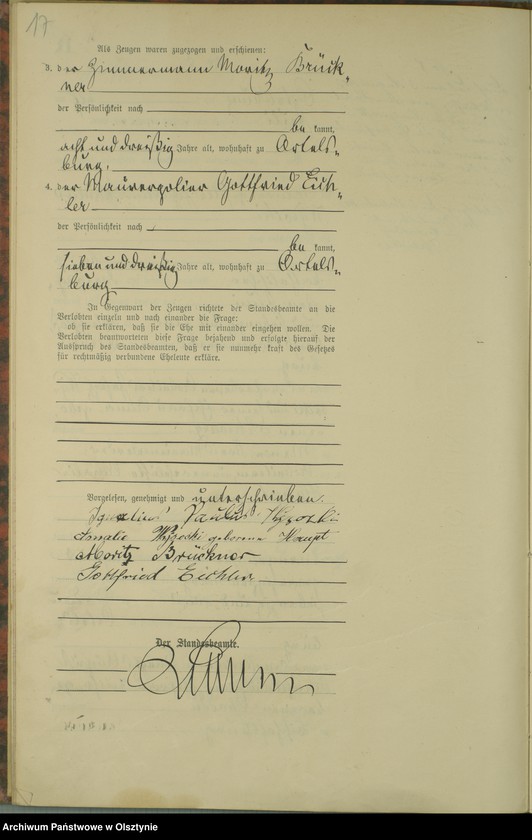 17
Als Zeugen waren zugezogen und erschienen:
3. der Zimmermann Moritz Brück-
ner
der Persönlichkeit nach
be kannt,
acht und dreißig Jahre alt, wohnhaft zu Ortels-
burg.
4. der Maurerpolier Gottfried Eich-
ler
der Persönlichkeit nach
be kannt,
sieben und dreißig Jahre alt, wohnhaft zu Ortels-
burg
In Gegenwart der Zeugen richtete der Standesbeamte an die
Verlobten einzeln und nach einander die Frage:
ob sie erklären, daß sie die Ehe mit einander eingehen wollen. Die
Verlobten beantworteten diese Frage bejahend und erfolgte hierauf der
Ausspruch des Standesbeamten, daß er sie nunmehr kraft des Gesetzes
für rechtmäßig verbundene Eheleute erkläre.
Vorgelesen, genehmigt und unterschrieben.
Ignatius Paulus
Amalie geborene Haupt
Moritz Brückner
Gottfried Eichler
Der Standesbeamte.
Archiwum Państwowe w Olsztynie